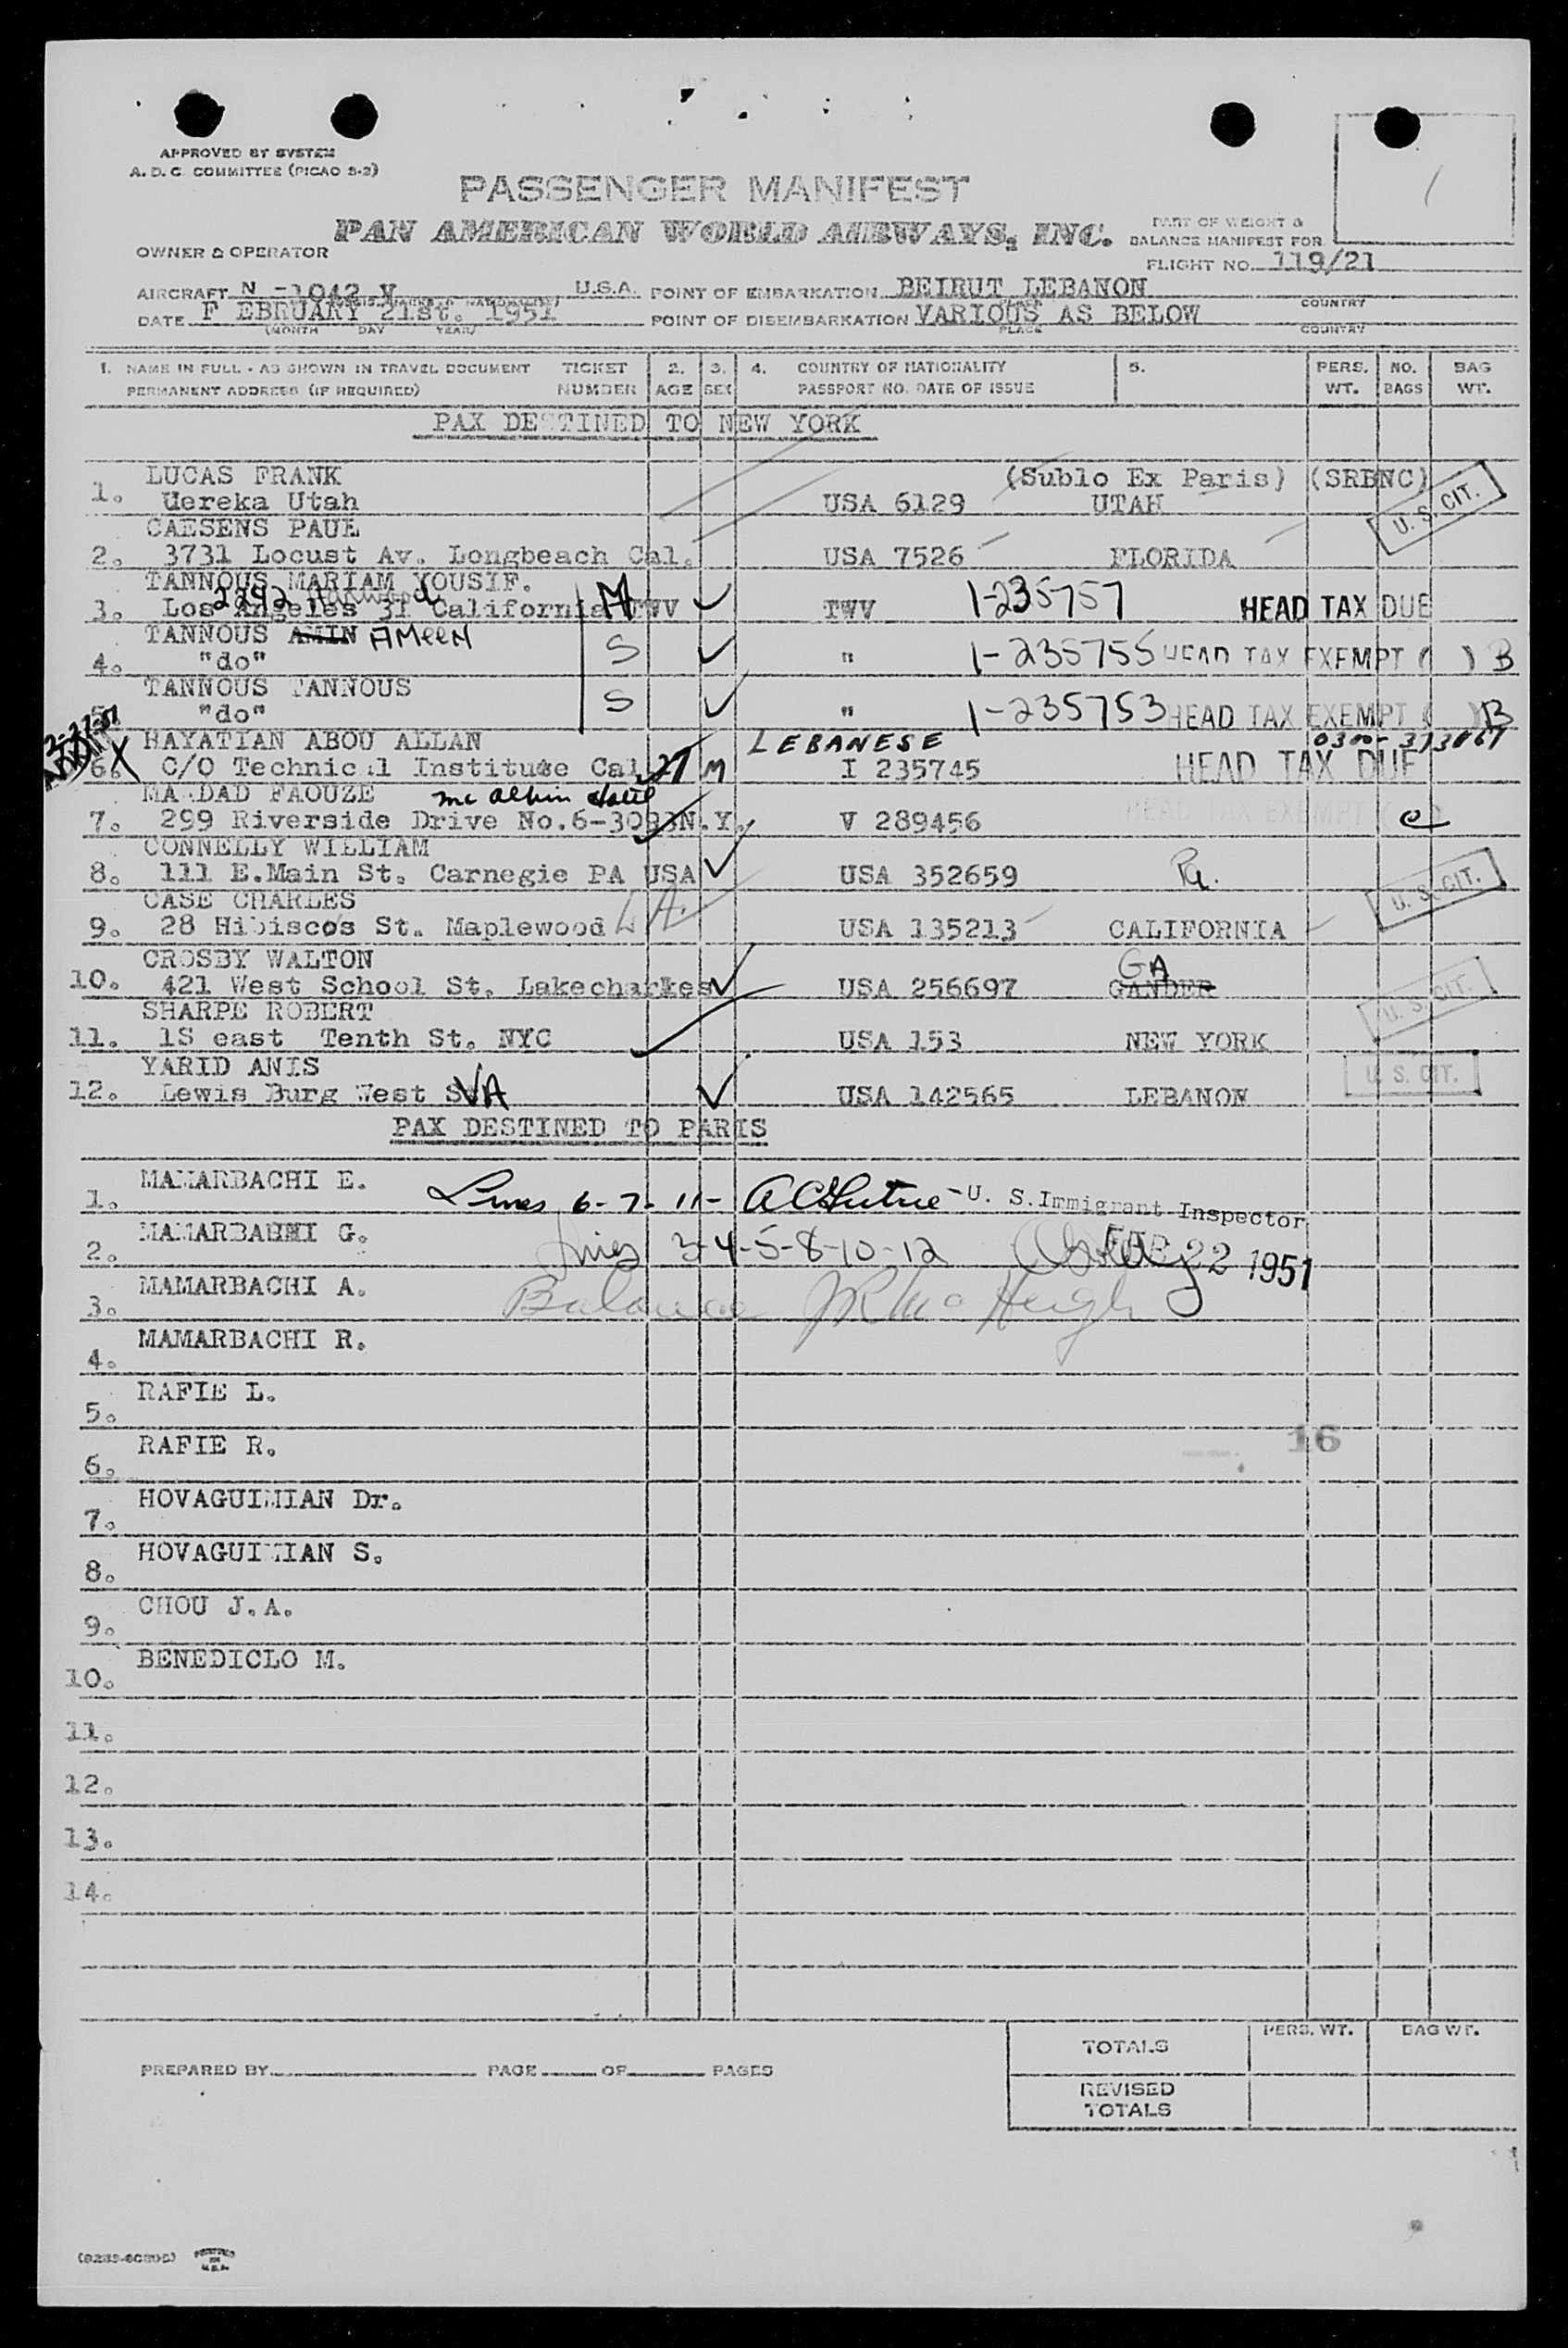 APPROVED BY SYSTEM
A. D. C. COMMITTEE (PICAO 2-2)
PASSENGER MANIFEST
PAN AMERICAN WORLD AIRWAYS, INC.
PART OF WEIGHT &
BALANCE MANIFEST FOR
OWNER & OPERATOR
FLIGHT NO. 119/21
AIRCRAFT N -1042 V U.S.A. POINT OF EMBARKATION BEIRUT LEBANON
COUNTRY
DATE F EBRUARY 21st. 1951 POINT OF DISEMBARKATION VARIOUS AS BELOW
(MONTH DAY YEAR) PLACE COUNTRY
1. NAME IN FULL - AS SHOWN IN TRAVEL DOCUMENT TICKET 2. 3. 4. COUNTRY OF NATIONALITY 5. PERS. NO. BAG
PERMANENT ADDRESS (IF REQUIRED) NUMBER AGE SEX PASSPORT NO. DATE OF ISSUE WT. BAGS WT.
PAX DESTINED TO NEW YORK
LUCAS FRANK (Sublo Ex Paris) (SRBNC)
1. Uereka Utah USA 6129 UTAH U. S. CIT.
CAESENS PAUL
2. 3731 Locust Av. Longbeach Cal. USA 7526 FLORIDA
TANNOUS MARIAM YOUSIF.
2292
3. Los Angeles 31 California M TWV TWV 1-235757 HEAD TAX DUE
TANNOUS AMIN AMEEN
4. "do" S " 1-235755 HEAD TAX EXEMPT ( ) B
TANNOUS TANNOUS
5. "do" S " 1-235753 HEAD TAX EXEMPT ( ) B
HAYATIAN ABOU ALLAN LEBANESE
6. X C/O Technical Institute Cal. 27 M I 235745 HEAD TAX DUE
MARDAD FAOUZE Mc Alpin Hotel
7. 299 Riverside Drive No.6-30 N.Y. V 289456 HEAD TAX EXEMPT (
CONNELLY WILLIAM
8. 111 E.Main St. Carnegie PA USA USA 352659 Pa. U. S. CIT.
CASE CHARLES
9. 28 Hibiscos St. Maplewood LA. USA 135213 CALIFORNIA
CROSBY WALTON GA
10. 421 West School St. Lakecharles USA 256697 GANDER U. S. CIT.
SHARPE ROBERT
11. 1S east Tenth St. NYC USA 153 NEW YORK
YARID ANIS
12. Lewis Burg West VA USA 142565 LEBANON U. S. CIT.
PAX DESTINED TO PARIS
MAMARBACHI E.
1. Lines 6-7-11- U. S. Immigrant Inspector
MAMARBACHI G.
2. Lines 3-4-5-8-10-12 FEB 22 1951
MAMARBACHI A.
3. Balance
MAMARBACHI R.
4.
RAFIE L.
5.
RAFIE R. 16
6.
HOVAGUIMIAN Dr.
7.
HOVAGUIMIAN S.
8.
CHOU J.A.
9.
BENEDICLO M.
10.
11.
12.
13.
14.
TOTALS PERS. WT. BAG WT.
PREPARED BY PAGE OF PAGES
REVISED
TOTALS
PRINTED
IN
U.S.A.